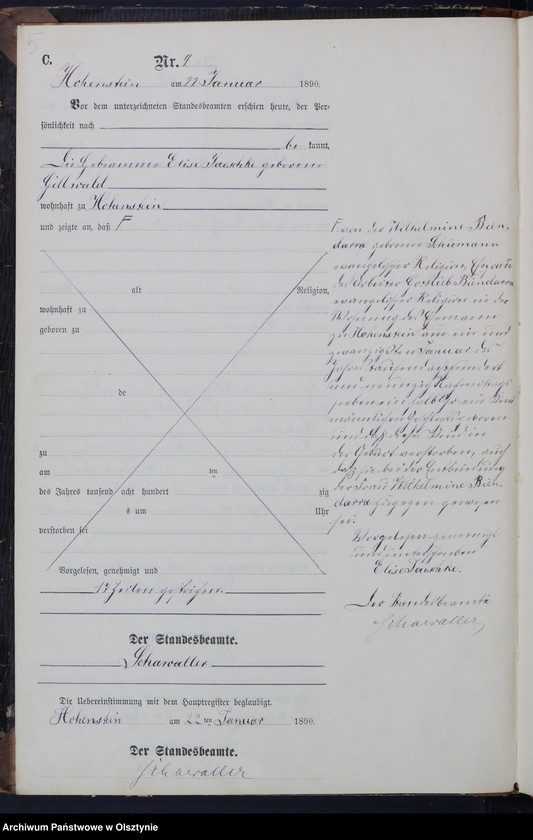 5
C.
Nr. 4
Hohenstein am 22 Januar 1890.
Vor dem unterzeichneten Standesbeamten erschien heute, der Per-
sönlichkeit nach
be kannt,
Die Hebamme Elise Jaeschke geborene
Gillwald
wohnhaft zu Hohenstein
und zeigte an, daß F
alt Religion,
wohnhaft zu
geboren zu
de
zu
am ten
des Jahres tausend acht hundert zig
s um Uhr
verstorben sei
Vorgelesen, genehmigt und
17 Zeilen gestrichen.
Der Standesbeamte.
Schawaller
Die Uebereinstimmung mit dem Hauptregister beglaubigt.
Hohenstein am 22 ten Januar 1890.
Der Standesbeamte.
Schawaller
F von der Wilhelmine Bien-
darra geborene Schiemann
evangelischer Religion, Ehefrau
des Arbeiter Gottlieb Biendarra
evangelischer Religion in der
Wohnung des Ehemann
zu Hohenstein am ein und
zwanzigsten Januar des
Jahres tausend achthundert
und neunzig Nachmittags
ein Kind
männlichen Geschlechts geboren
und daß dieses Kind in
der Geburt verstorben, auch
daß sie bei der Entbindung
der Frau Wilhelmine Bien-
darra zugegen gewesen
sei.
Vorgelesen genehmigt
und unterschrieben
Elise Jaeschke.
Der Standesbeamte
Schawaller
Archiwum Państwowe w Olsztynie